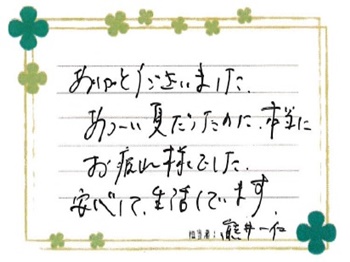 ありがとうございました。
あつーい夏だったのに、本当に
お疲れ様でした。
安心して、生活しています。
担当者：熊井一仁